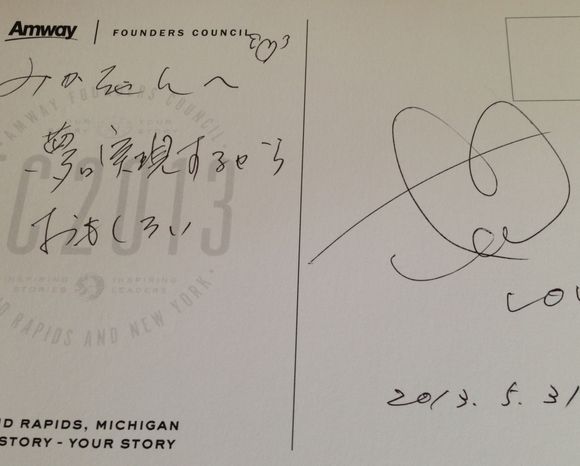 Amway | FOUNDERS COUNCIL
みかちゃんへ
AMWAY FOUNDERS COUNCIL
夢は実現するから
C2013
おもしろい
INSPIRING STORIES INSPIRING LEADERS
D RAPIDS AND NEW YORK
LOV
2013. 5. 31
D RAPIDS, MICHIGAN
STORY - YOUR STORY